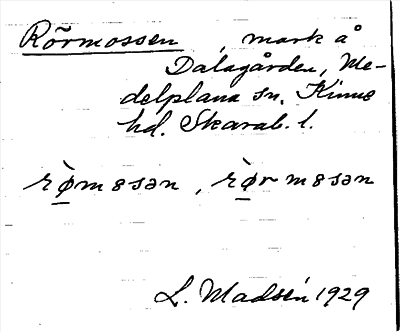 Rörmossen, mark å
Dalagården, Me-
delplana sn. Kinne
hd. Skarab. l.
rø̀m8sən, rø̀rm8sən
L. Madsén 1929